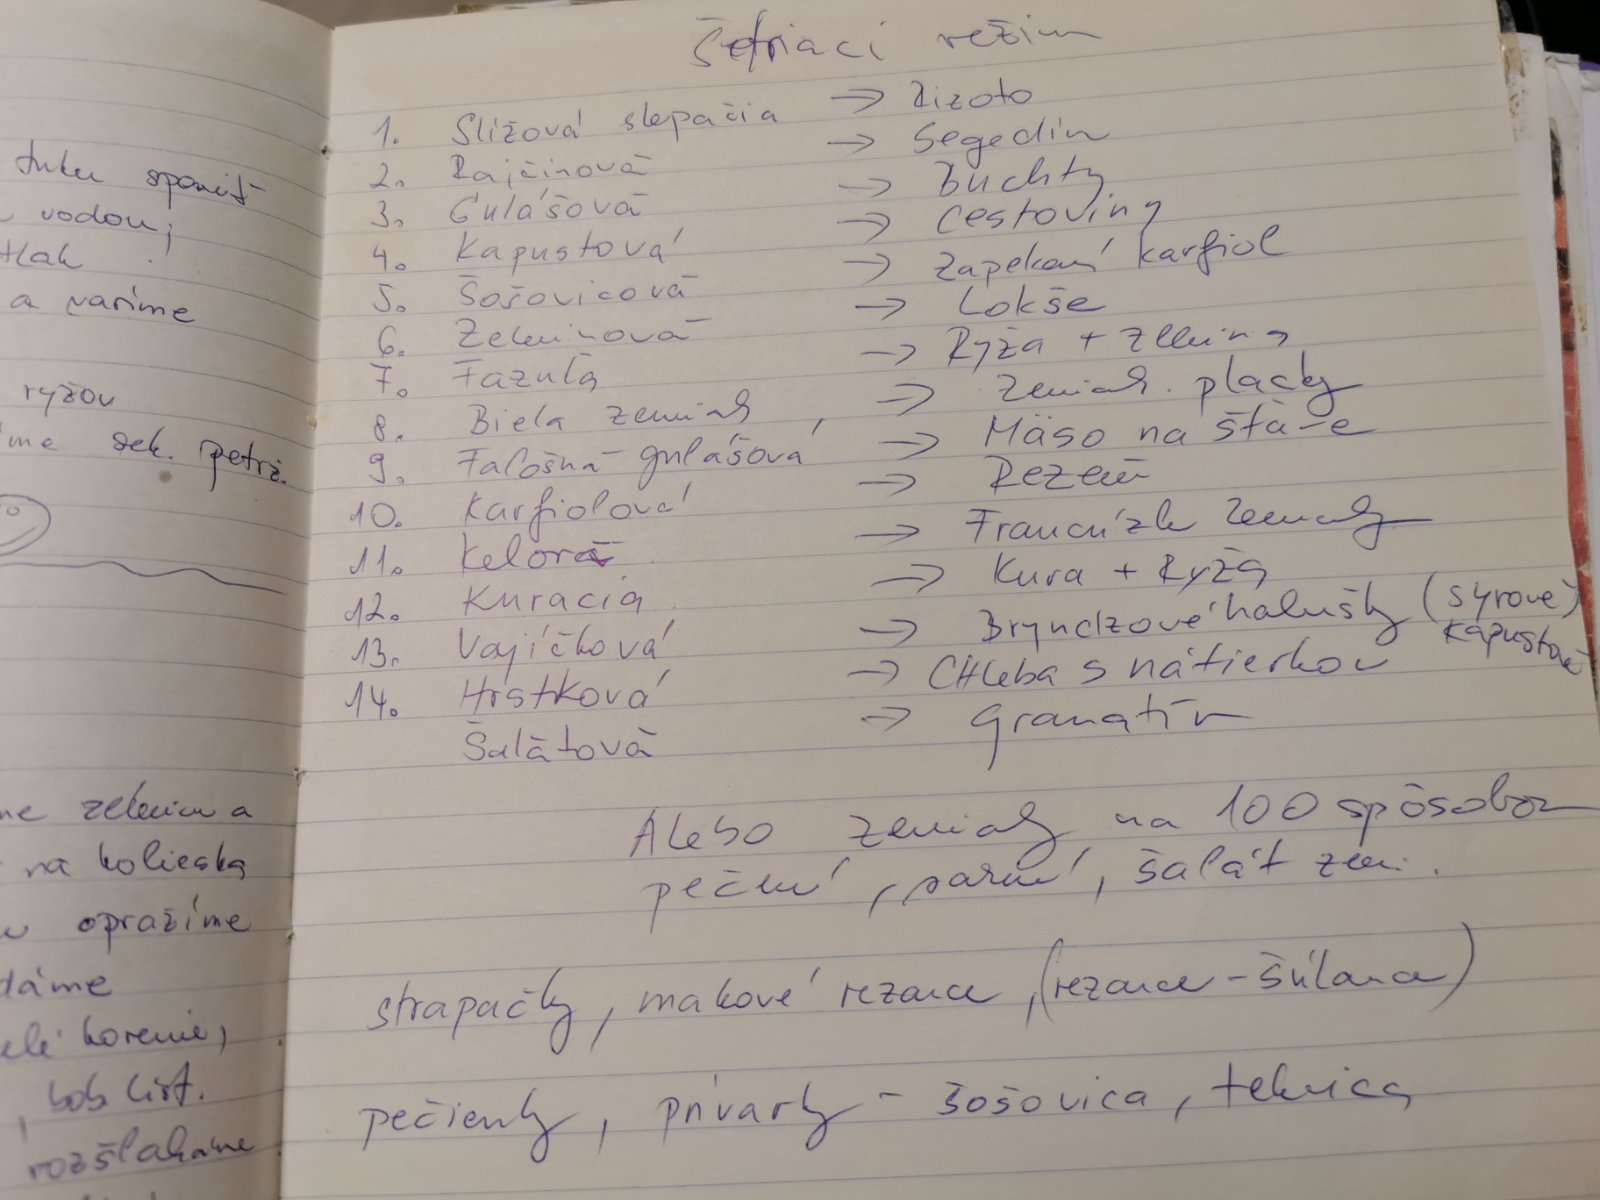 tuku speniť
vodou,
tlak
a varíme
ryžou
sek. petrž.
me zeleninu a
na kolieska
opražíme
dáme
korenie,
bob. list.
rozšľaháme
Šetriaci režim
1. Slížová slepačia → Rizoto
2. Rajčinová → Segedín
3. Gulášová → Buchty
4. Kapustová → Cestoviny
5. Šošovicová → Zapekaný karfiol
6. Zeleninová → Lokše
7. Fazuľa → Ryža + zelenina
8. Biela zemiak → Zemiak. placky
9. Falošná gulášová → Mäso na šťave
10. Karfiolová → Rezeň
11. Kelová → Francúzke zemiaky
12. Kuracia → Kura + Ryža
13. Vajíčková → Bryndzové halušky (syrové) kapustové
14. Hrstková → CHleba s nátierkou
Šalátová → Granatír
Alebo zemiaky na 100 spôsobov
pečené, varené, šalát zem.
strapačky, makové rezance, (rezance - šúlance)
pečienky, prívarky - šošovica, tekvica